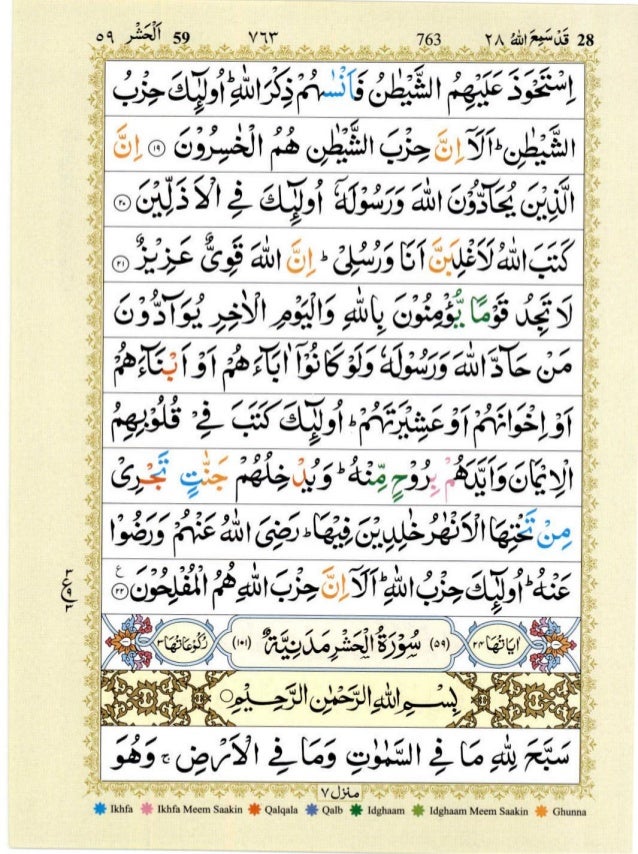 اَلْحَشْر 59 ٥٩ ٧٦٣ 763 قَدْ سَمِعَ اللهُ ٢٨ 28
اِسْتَحْوَذَ عَلَيْهِمُ الشَّيْطٰنُ فَاَنْسٰىهُمْ ذِكْرَ اللّٰهِ ؕ اُولٰٓئِكَ حِزْبُ
الشَّيْطٰنِ ؕ اَلَاۤ اِنَّ حِزْبَ الشَّيْطٰنِ هُمُ الْخٰسِرُوْنَ ﴿١٩﴾ اِنَّ
الَّذِيْنَ يُحَآدُّوْنَ اللّٰهَ وَرَسُوْلَهٗۤ اُولٰٓئِكَ فِي الْاَذَلِّيْنَ ﴿٢٠﴾
كَتَبَ اللّٰهُ لَاَغْلِبَنَّ اَنَا وَرُسُلِيْ ؕ اِنَّ اللّٰهَ قَوِيٌّ عَزِيْزٌ ﴿٢١﴾
لَا تَجِدُ قَوْمًا يُّؤْمِنُوْنَ بِاللّٰهِ وَالْيَوْمِ الْاٰخِرِ يُوَآدُّوْنَ
مَنْ حَآدَّ اللّٰهَ وَرَسُوْلَهٗ وَلَوْ كَانُوْۤا اٰبَآءَهُمْ اَوْ اَبْنَآءَهُمْ
اَوْ اِخْوَانَهُمْ اَوْ عَشِيْرَتَهُمْ ؕ اُولٰٓئِكَ كَتَبَ فِيْ قُلُوْبِهِمُ
الْاِيْمَانَ وَاَيَّدَهُمْ بِرُوْحٍ مِّنْهُ ؕ وَيُدْخِلُهُمْ جَنّٰتٍ تَجْرِيْ
مِنْ تَحْتِهَا الْاَنْهٰرُ خٰلِدِيْنَ فِيْهَا ؕ رَضِيَ اللّٰهُ عَنْهُمْ وَرَضُوْا
عَنْهُ ؕ اُولٰٓئِكَ حِزْبُ اللّٰهِ ؕ اَلَاۤ اِنَّ حِزْبَ اللّٰهِ هُمُ الْمُفْلِحُوْنَ ﴿٢٢﴾ ع
٣ ع ٩ ٢
اٰيَاتُهَا ٢٤ (٥٩) سُوْرَةُ الْحَشْرِ مَدَنِيَّةٌ (١٠١) رُكُوْعَاتُهَا ٣
بِسْمِ اللّٰهِ الرَّحْمٰنِ الرَّحِيْمِ
سَبَّحَ لِلّٰهِ مَا فِي السَّمٰوٰتِ وَمَا فِي الْاَرْضِ ۚ وَهُوَ
منزل ٧
Ikhfa Ikhfa Meem Saakin Qalqala Qalb Idghaam Idghaam Meem Saakin Ghunna